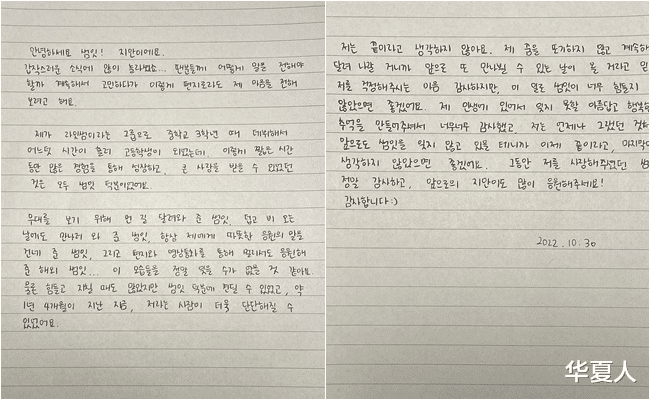 안녕하세요 범잇! 지안이에요.
갑작스러운 소식에 많이 놀라셨죠... 팬분들께 어떻게 말을 전해야
할까 계속해서 고민하다가 이렇게 편지로라도 제 마음을 전해
보려고 해요.
제가 라잇썸이라는 그룹으로 중학교 3학년 때 데뷔해서
어느덧 시간이 흘러 고등학생이 되었는데 이렇게 짧은 시간
동안 많은 경험을 통해 성장하고, 큰 사랑을 받을 수 있었던
것은 모두 썸잇 덕분이었어요.
무대를 보기 위해 먼 길 달려와 준 썸잇, 덥고 비 오는
날에도 만나러 와 준 썸잇, 항상 제게 따뜻한 응원의 말을
건네 준 썸잇, 그리고 편지와 영상통화를 통해 멀리서도 응원해
준 해외 썸잇... 이 모습들을 정말 잊을 수가 없을 것 같아요.
물론 힘들고 지칠 때도 있었지만 썸잇 덕분에 견딜 수 있었고, 약
1년 4개월이 지난 지금, 저라는 사람이 더욱 단단해질 수
있었어요.
저는 끝이라고 생각하지 않아요. 제 꿈을 포기하지 않고 계속해
달려 나갈 거니까 앞으로 또 만나뵐 수 있는 날이 올 거라고 믿
저를 걱정해주시는 마음 감사하지만, 이 일로 썸잇이 너무 힘들지
않았으면 좋겠어요. 제 인생에 있어서 잊지 못할 아름답고 행복한
추억을 만들어주셔서 너무너무 감사했고, 저는 언제나 그랬던 것처
앞으로도 썸잇을 잊지 않고 있을 테니까 이게 끝이라고, 마지막이
생각하지 않았으면 좋겠어요. 그동안 저를 사랑해주셨던 썸
정말 감사하고, 앞으로의 지안이도 많이 응원해주세요!
감사합니다 :)
2022. 10. 30
华夏人